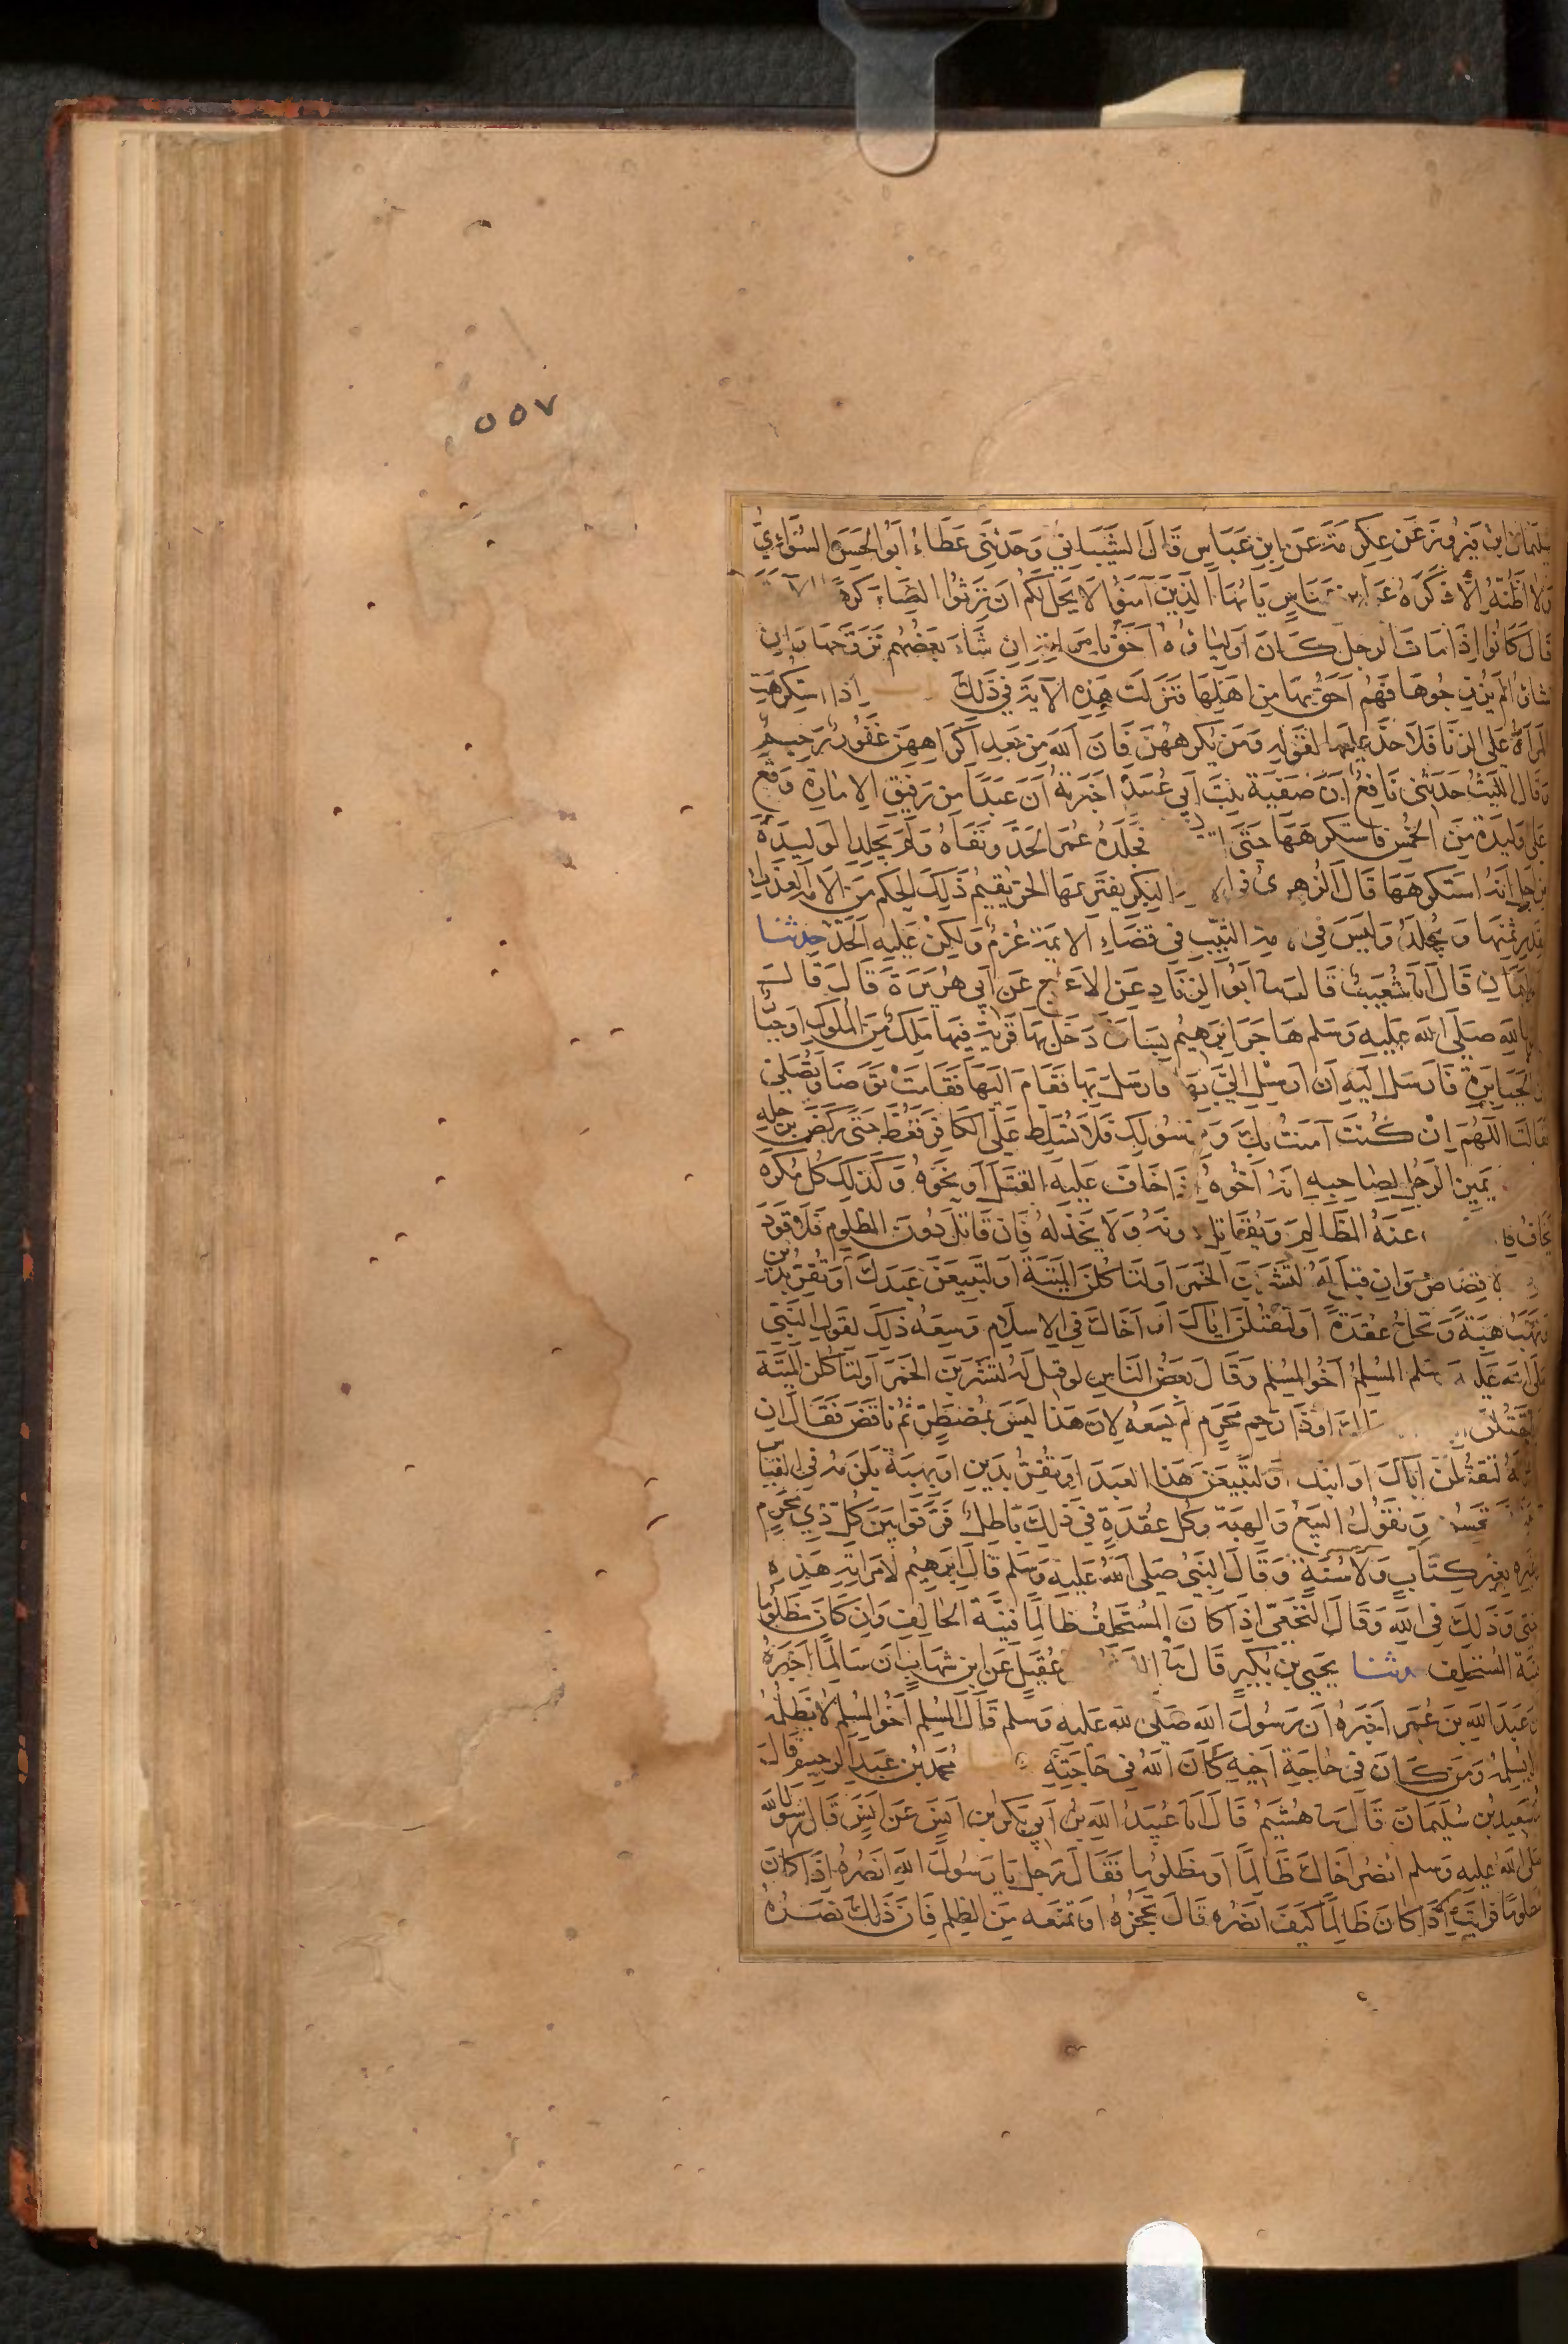 ٥٥٧
سليمان ابن فيروز عن عكرمة عن ابن عباس قال الشيباني وحدثني عطاء ابو الحسن السوائي
ولا اظنه الا ذكره عن ابن عباس يا يها الذين آمنوا لا يحل لكم ان ترثوا النساء كرها الآية
قال كانوا اذا مات الرجل كان اولياؤه احق بامراته ان شاء بعضهم تزوجها وان
شاؤا لم يزوجوها فهم احق بها من اهلها فنزلت هذه الآية في ذلك اذا استكرهت
المراة على الزنا فلا حد عليها لقوله ومن يكرههن فان الله من بعد اكراههن غفور رحيم
وقال الليث حدثني نافع ان صفية بنت ابي عبيد اخبرته ان عبدا من رقيق الامارة وقع
على وليدة من الخمس فاستكرهها حتى فجلده عمر الحد ونفاه ولم يجلد الوليدة
من اجل انه استكرهها قال الزهري في البكر يفترعها الحر يقيم ذلك الحكم من الامة العذراء
بقدر ثمنها ويجلد وليس في الثيب في قضاء الايمة غرم ولكن عليه الحد حدثنا
اليمان قال انا شعيب قال نا ابو الزناد عن الاعرج عن ابي هريرة قال قال
الله صلى الله عليه وسلم هاجر ابرهيم بسارة دخل بها قرية فيها ملك من الملوك او جبار
من الجبابرة فارسل اليه ان ارسل الي بها فارسل بها فقام اليها فقامت توضا وتصلي
فقالت اللهم ان كنت آمنت بك وبرسولك فلا تسلط على الكافر فغط حتى ركض برجله
يمين الرجل لصاحبه انه اخوه اذا خاف عليه القتل او نحوه وكذلك كل مكره
يخاف عنه الظالم ويقاتل دونه ولا يخذله فان قاتل دون المظلوم فلا قود
ولا قصاص وان قيل له لتشربن الخمر او لتاكلن الميتة او لتبيعن عبدك او تقر بدين
وتهب هبة وتحل عقدة او لتقتلن اباك او اخاك في الاسلام وسعه ذلك لقول النبي
صلى الله عليه وسلم المسلم اخو المسلم وقال بعض الناس لو قيل له لتشربن الخمر او لتاكلن الميتة
او لتقتلن او ذا رحم محرم لم يسعه لان هذا ليس بمضطر ثم ناقض فقال ان
له لنقتلن اباك او ابنك او لتبيعن هذا العبد او تقر بدين او بهبة يلزمه في القياس
ونقول البيع والهبة وكل عقدة في ذلك باطل فرقوا بين كل ذي محرم
وغيره بغير كتاب ولا سنة وقال النبي صلى الله عليه وسلم قال ابرهيم لامراته هذه
اختي وذلك في الله وقال النخعي اذا كان المستحلف ظالما فنية الحالف وان كان مظلوما
فنية المستحلف حدثنا يحيى بن بكير قال نا عقيل عن ابن شهاب ان سالما اخبره
ان عبد الله بن عمر اخبره ان رسول الله صلى الله عليه وسلم قال المسلم اخو المسلم لا يظلمه
ولا يسلمه ومن كان في حاجة اخيه كان الله في حاجته محمد بن عبد الرحيم قال نا
سعيد بن سليمان قال نا هشيم قال انا عبيد الله بن ابي بكر ابن انس عن انس قال رسول الله
صلى الله عليه وسلم انصر اخاك ظالما او مظلوما فقال رجل يا رسول الله انصره اذا كان
مظلوما افرايت اذا كان ظالما كيف انصره قال تحجزه او تمنعه من الظلم فان ذلك نصره